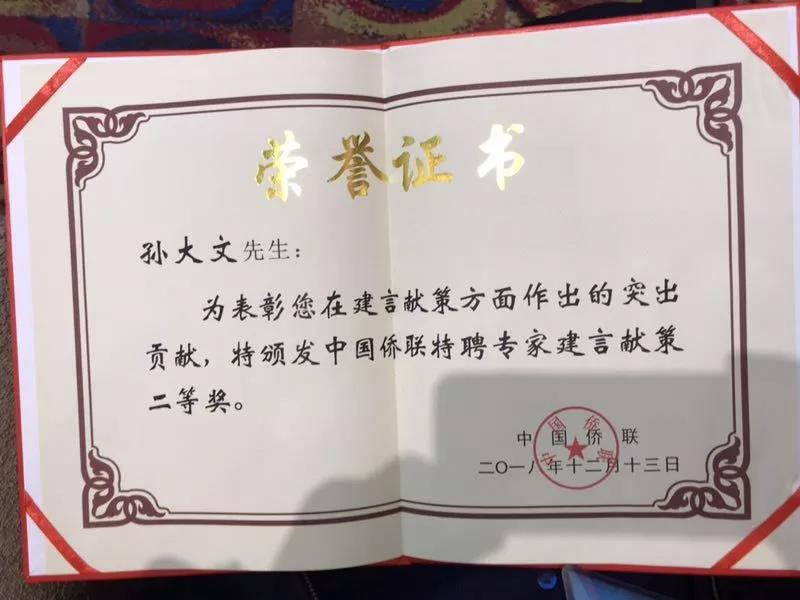 荣誉证书
孙大文先生：
为表彰您在建言献策方面作出的突出
贡献，特颁发中国侨联特聘专家建言献策
二等奖。
中国侨联
二〇一八年十二月十三日
中国侨联